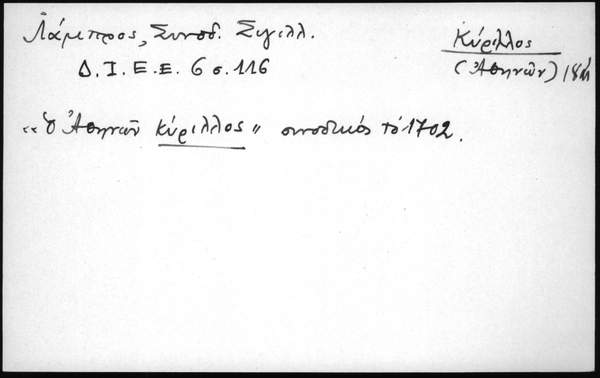 Λάμπρος, Συνοδ. Σιγιλλ.
Δ. Ι. Ε. Ε. 6 σ. 116
Κύριλλος
(Ἀθηνῶν)
«Ὁ Ἀθηνῶν Κύριλλος» συνοδικός τό 1702.